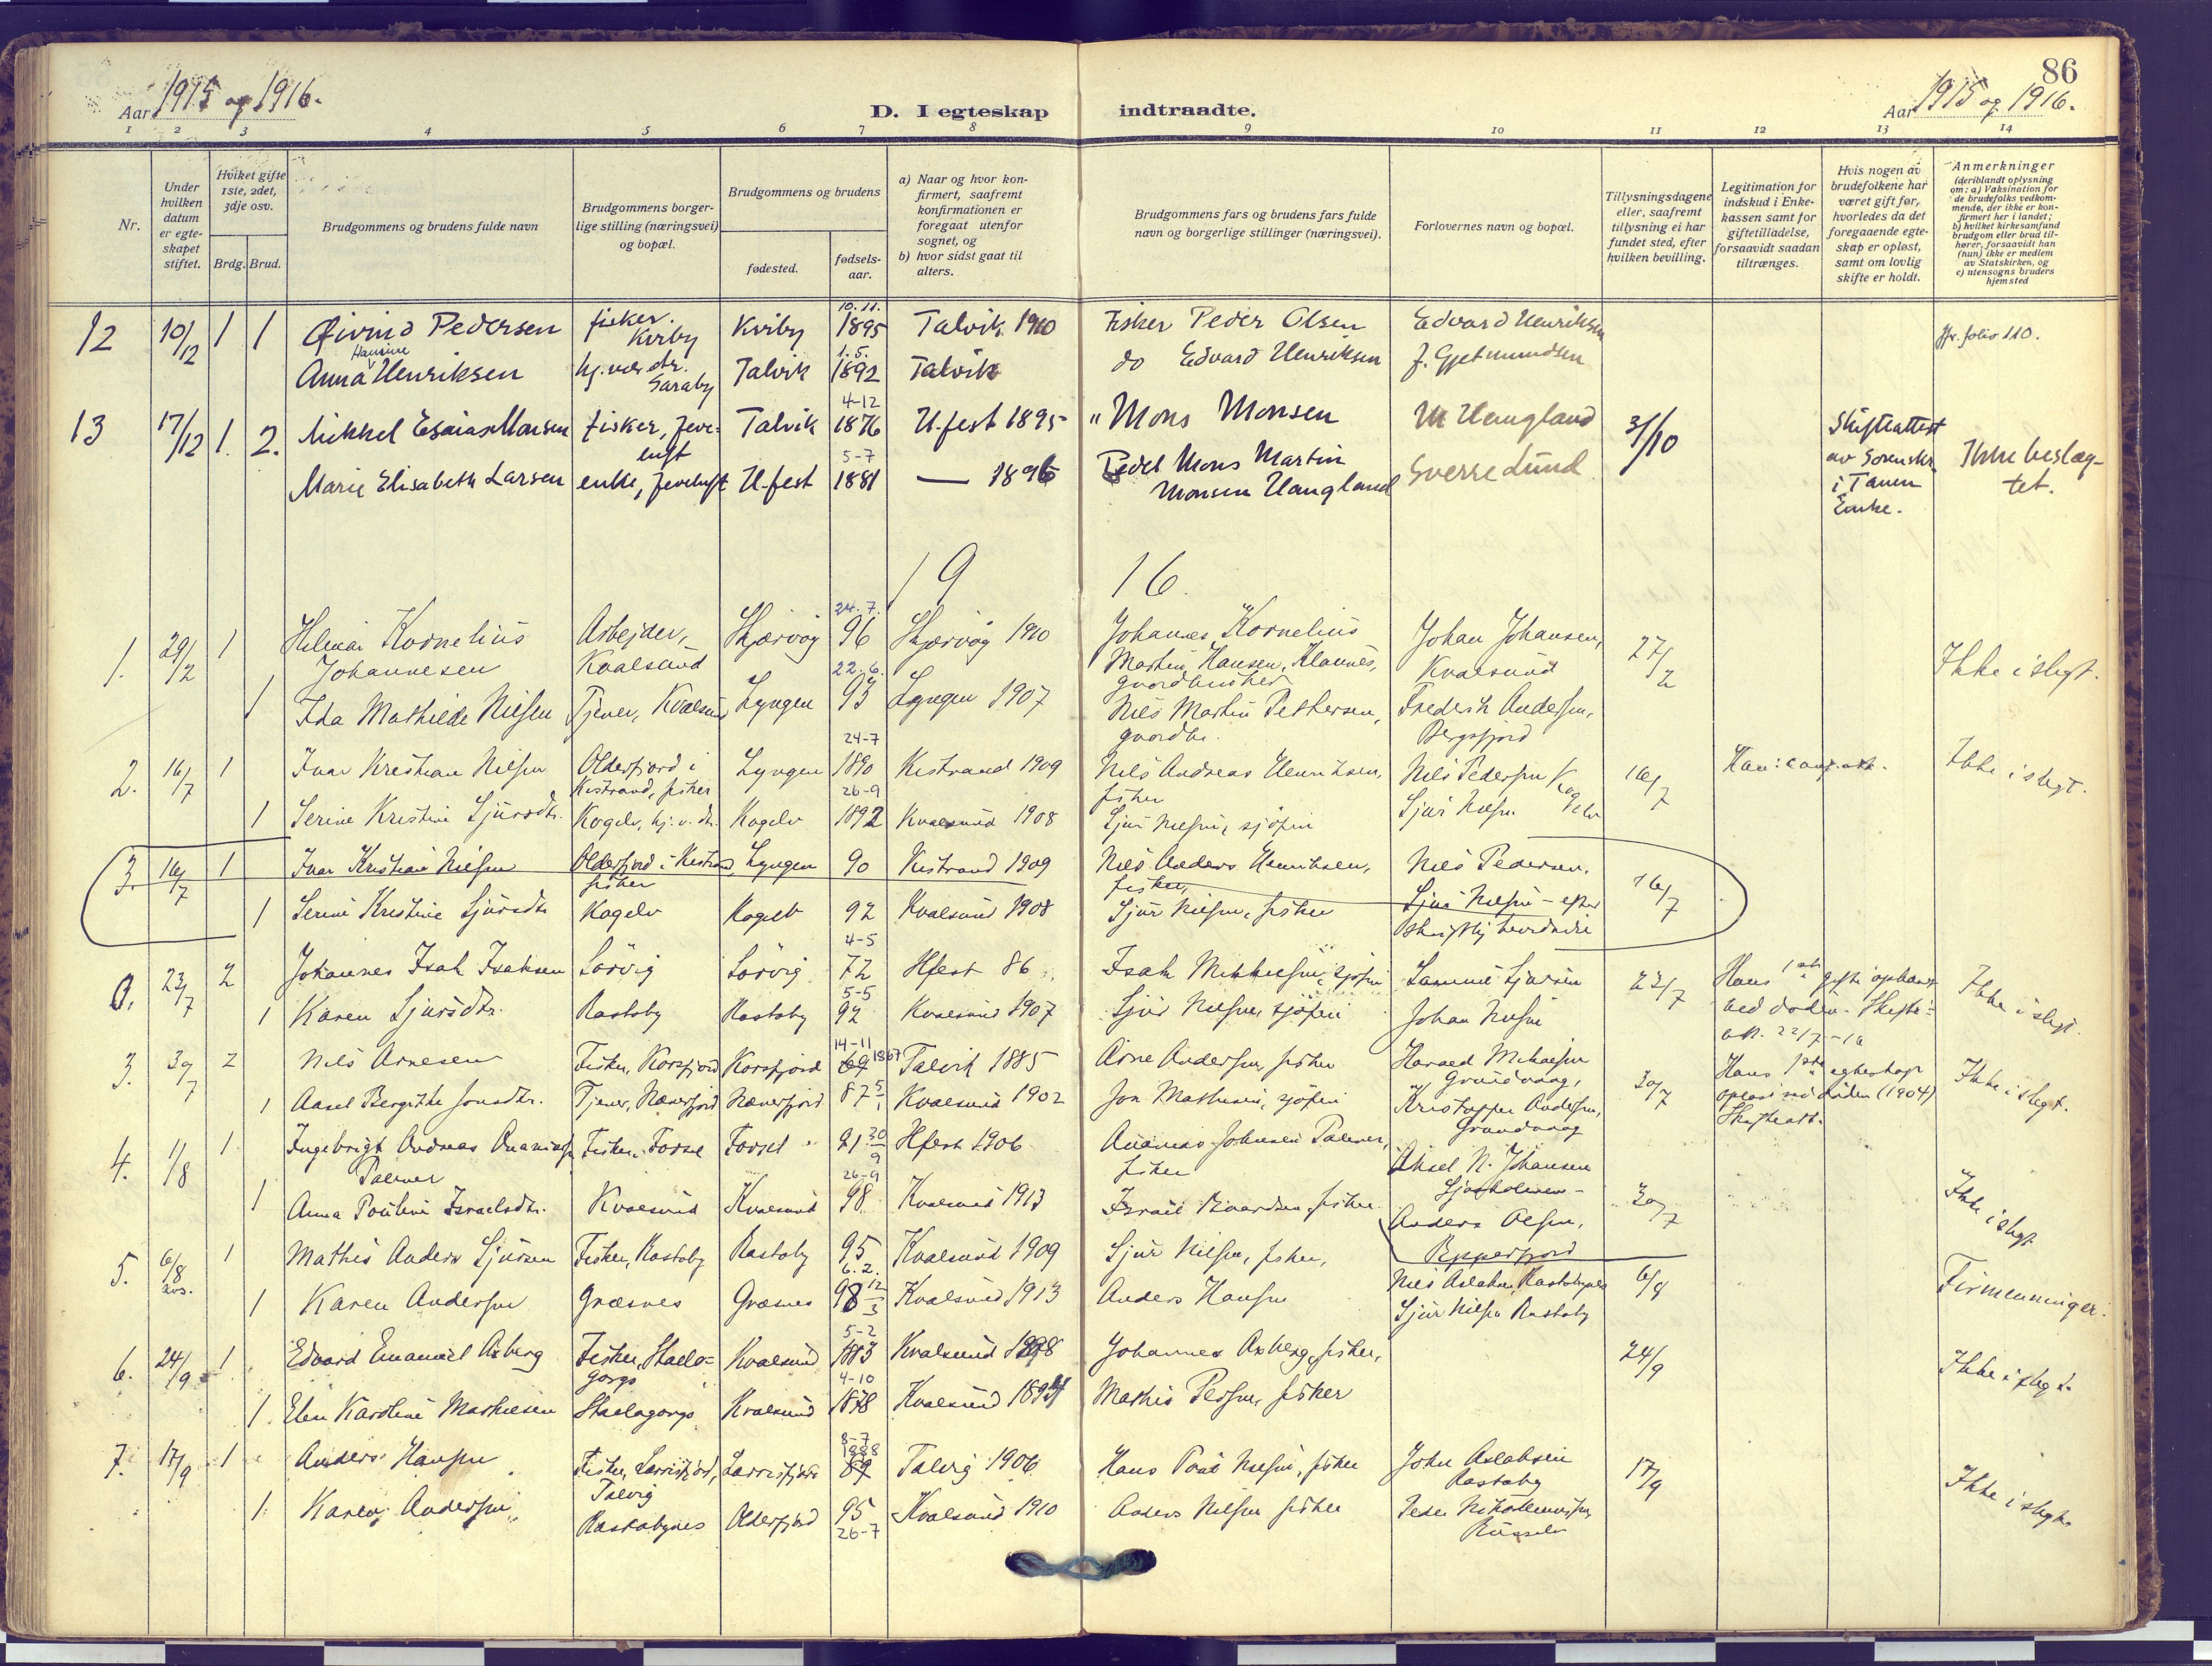 86
Aar 1915 og 1916.
D. I egteskap indtraadte.
Aar 1915 og 1916.
1 2 3 4 5 6 7 8 9 10 11 12 13 14
Nr.
Under hvilken datum er egteskapet stiftet.
Hvilket gifte 1ste, 2det, 3dje osv.
Brdg. Brud.
Brudgommens og brudens fulde navn
Brudgommens borgerlige stilling (næringsvei) og bopæl.
Brudgommens og brudens
fødested.
fødselsaar.
a) Naar og hvor konfirmert, saafremt konfirmationen er foregaat utenfor sognet, og
b) hvor sidst gaat til alters.
Brudgommens fars og brudens fars fulde navn og borgerlige stillinger (næringsvei).
Forlovernes navn og bopæl.
Tillysningsdagene eller, saafremt tillysning ei har fundet sted, efter hvilken bevilling.
Legitimation for indskud i Enkekassen samt for giftetilladelse, forsaavidt saadan tiltrænges.
Hvis nogen av brudefolkene har været gift før, hvorledes da det foregaaende egteskap er opløst, samt om lovlig skifte er holdt.
Anmerkninger (deriblandt oplysning om: a) Vaksination for de brudefolks vedkommende, der ikke er konfirmert her i landet; b) hvilket kirkesamfund brudgom eller brud tilhører, forsaavidt han (hun) ikke er medlem av Statskirken, og c) utensogns bruders hjemsted
12 10/12 1 1 Øivind Pedersen fisker. Kviby Kviby 10.11. 1895 Talvik 1910 Fisker Peder Olsen Edvard Henriksen jfr. folio 110.
Anna Hansine Henriksen hj.vær. dtr. Saraby Talvik 1.5. 1892 Talvik do Edvard Henriksen J. Gjetmundsen
13 17/12 1. 2. Mikkel Esaias Monsen fisker, Talvik 4-12 1876 H.fest 1895 " Mons Monsen M Haugland 31/10 Skifteattest av Sorenskr. i Tanen Ikke beslægtet.
Marie Elisabeth Larsen enke, H-fest 5-7 1881 — 1896 Pedel Mons Martin Monsen Haugland Sverre Lund
19 16.
1. 29/2 1 Hilmar Kornelius Johannesen Arbejder, Kvalsund Skjærvøy 24.7. 96 Skjærvøy 1910 Johannes Kornelius Martin Hansen, gaardbruker Johan Johansen, Kvalsund 27/2 Ikke i slegt.
1 Ida Mathilde Nilsen Tjener, Kvalsund Lyngen 22.6. 93 Lyngen 1907 Nils Martin Pethersen, gaardbr. Fredrik Andersen, Bergsfjord
2. 16/7 1 Ivar Kristian Nilsen Olderfjord i Kistrand, fisker Lyngen 24-7 1890 Kistrand 1909 Nils Andreas Henriksen, fisker Nils Pedersen Kogelv 16/7 Ikke i slegt.
1 Serine Kristine Sjursdtr. Kogelv, hj. v. dtr. Kogelv 26-9 1892 Kvalsund 1908 Sjur Nilsen, sjöfin Sjur Nilsen
3. 16/7 1 Ivar Kristian Nilsen Olderfjord i Kistrand fisker Lyngen 90 Kistrand 1909 Nils Anders Henriksen, fisker, Nils Pedersen. 16/7
1 Serine Kristine Sjursdtr Kogelv Kogelv 92 Kvalsund 1908 Sjur Nilsen, fisker Sjur Nilsen - efter
23/7 2 Johannes Isak Isaksen Lörvig Lörvig 4-5 72 Hfest 86 Isak Mikkelsen, sjöfin 23/7 Hans 1ste gifte ophævet ved döden. Ikke i slegt.
1 Karen Sjursdtr. Rastaby Rastaby 5-5 92 Kvalsund 1907 Sjur Nilsen, sjöfin Johan Nilsen
3. 30/7 2 Nils Arnesen Fisker, Korsfjord Korsfjord 14-11 69 1867 Talvik 1885 Arne Andersen, fisker Harald Mikalsen Grundvaag, 30/7 Hans 1ste egteskap opløst ved döden (1904) Skifteatt. Ikke i slegt.
1 Aasel Bergithe Jonsdtr. Tjener, Næverfjord Næverfjord 87 5/1 Kvalsund 1902 Jon Mathisen, sjöfin Kristoffer Andersen, Grundvaag
4. 11/8 1 Ingebrigt Andreas Ananiassen Palmer Fisker, Forsöl Forsöl 91 30/9 Hfest 1906 Ananias Johnsen Palmer, fisker Aksel N. Johansen 30/7 Ikke i slegt
1 Anna Pouline Israelsdtr. Kvalsund Kvalsund 26-9 98 Kvalsund 1913 Israel Baardsen, fisker Anders Olsen, Repparfjord
5. 6/8 1 Mathis Anders Sjursen Fisker, Rastaby Rastaby 95 6.2. Kvalsund 1909 Sjur Nilsen, fisker, Nils Aslaksen Rastabynes 6/8 Firmenninger.
1 Karen Andersen Græsnes Græsnes 98 12/3 Kvalsund 1913 Anders Hansen Sjur Nilsen Rastaby
6. 24/9 1 Edvard Emanuel Asberg Fisker, Kvalsund 5-2 1883 Kvalsund 1898 Johannes Asberg, fisker, 24/9 Ikke i slegt.
1. Elen Karoline Mathisen Kvalsund 4-10 1878 Kvalsund 1894 Mathis Persen, fisker
7. 17/9 1 Anders Hansen Fisker, Talvig 8-7 1888 89 Talvig 1906 Hans Nilsen, fisker John Aslaksen Rastaby 17/9 Ikke i slegt.
1. Karen Andersen Rastabynes Olderfjord 95 26-7 Kvalsund 1910 Anders Nilsen fisker Peder